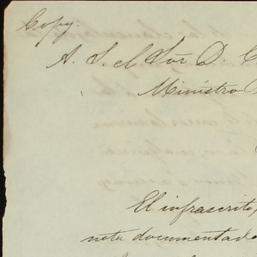 Copy.
A. S. el Sor D. C
Ministro
El infrascrito,
nota documentada